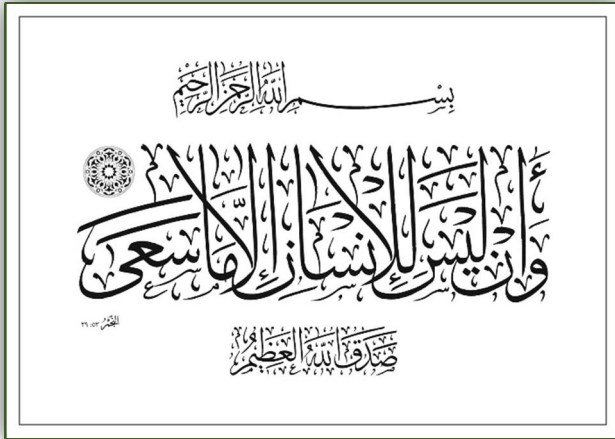 بِسْمِ اللهِ الرَّحْمٰنِ الرَّحِيْمِ
وَأَنْ لَيْسَ لِلْإِنْسَانِ إِلَّا مَا سَعَى
النجم ٥٣: ٣٩
صَدَقَ اللهُ الْعَظِيْمُ